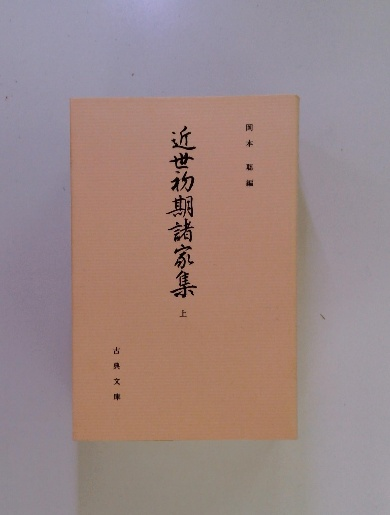 岡本聡編
近世初期諸家集 上
古典文庫